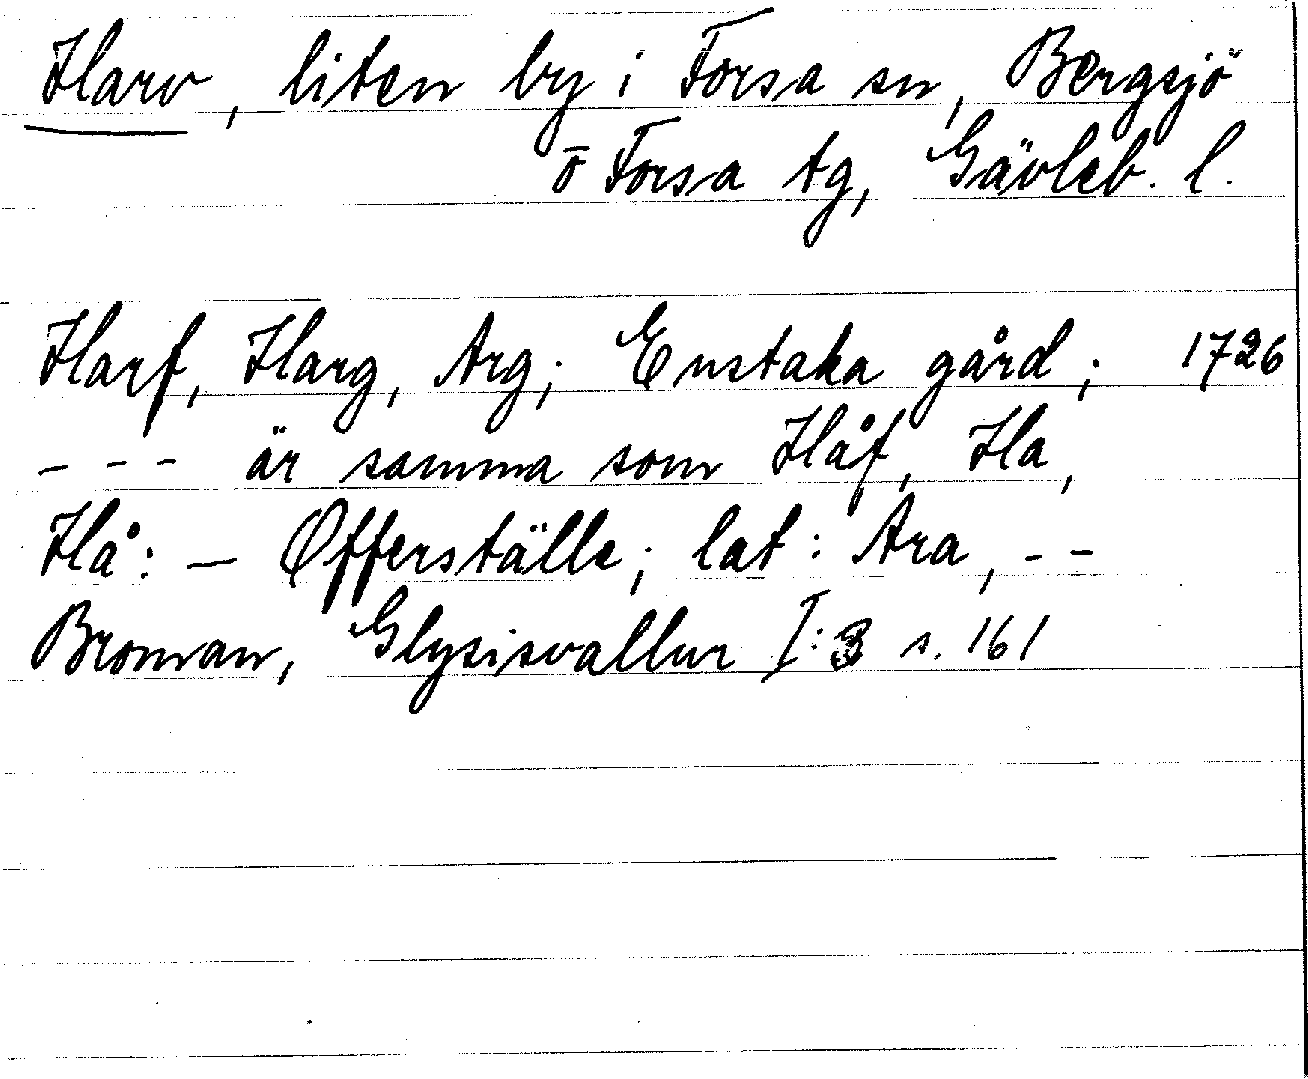 Harv, liten by i Forsa sn, Bergsjö
o Forsa tg, Gävleb. l.
Harf, Harg, Arg; Enstaka gård; 1726
- - - är samma som Håf, Ha,
Hå: — Offerställe; lat: Ara, - -
Broman, Glysisvallur I:3 s. 161